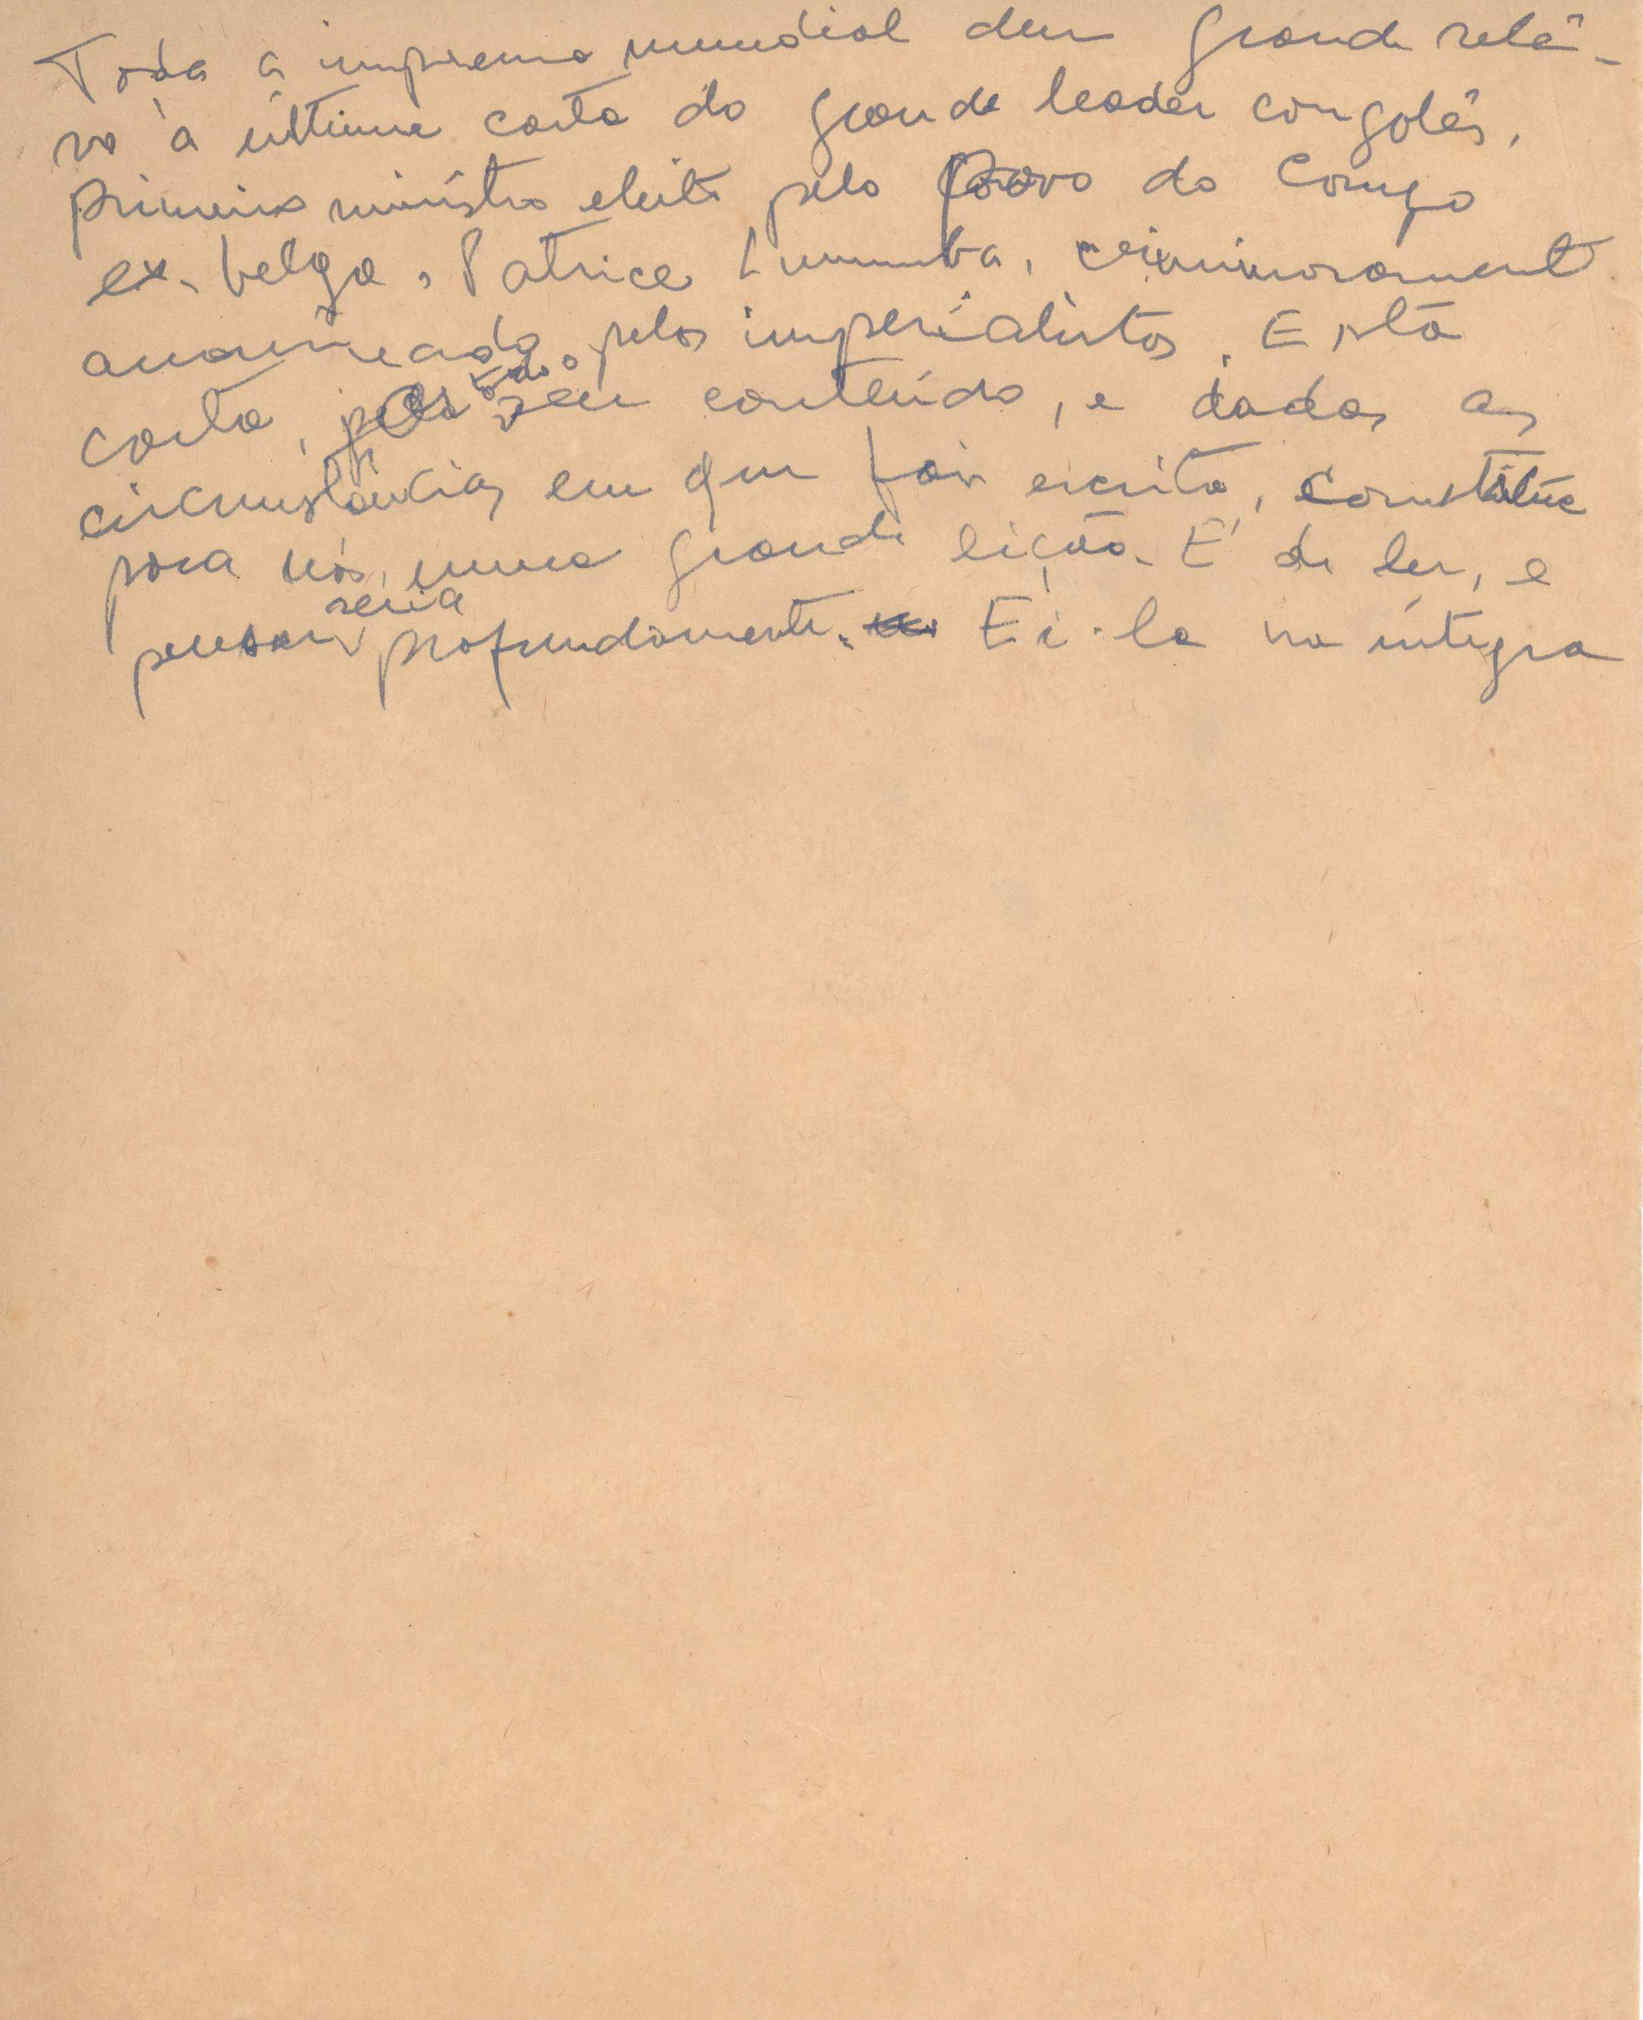 Toda a imprensa mundial deu grande relê-
vo à última carta do grande leader congolês,
primeiro ministro eleito pelo povo do Congo
ex-belga, Patrice Lumumba, criminosamente
assassinado pelos imperialistas. Esta
carta, por todo o seu conteúdo, e dadas as
circunstâncias em que foi escrita, constitue
para nós, uma grande lição. É de ler, e
pensar séria profundamente. Ei-la na íntegra